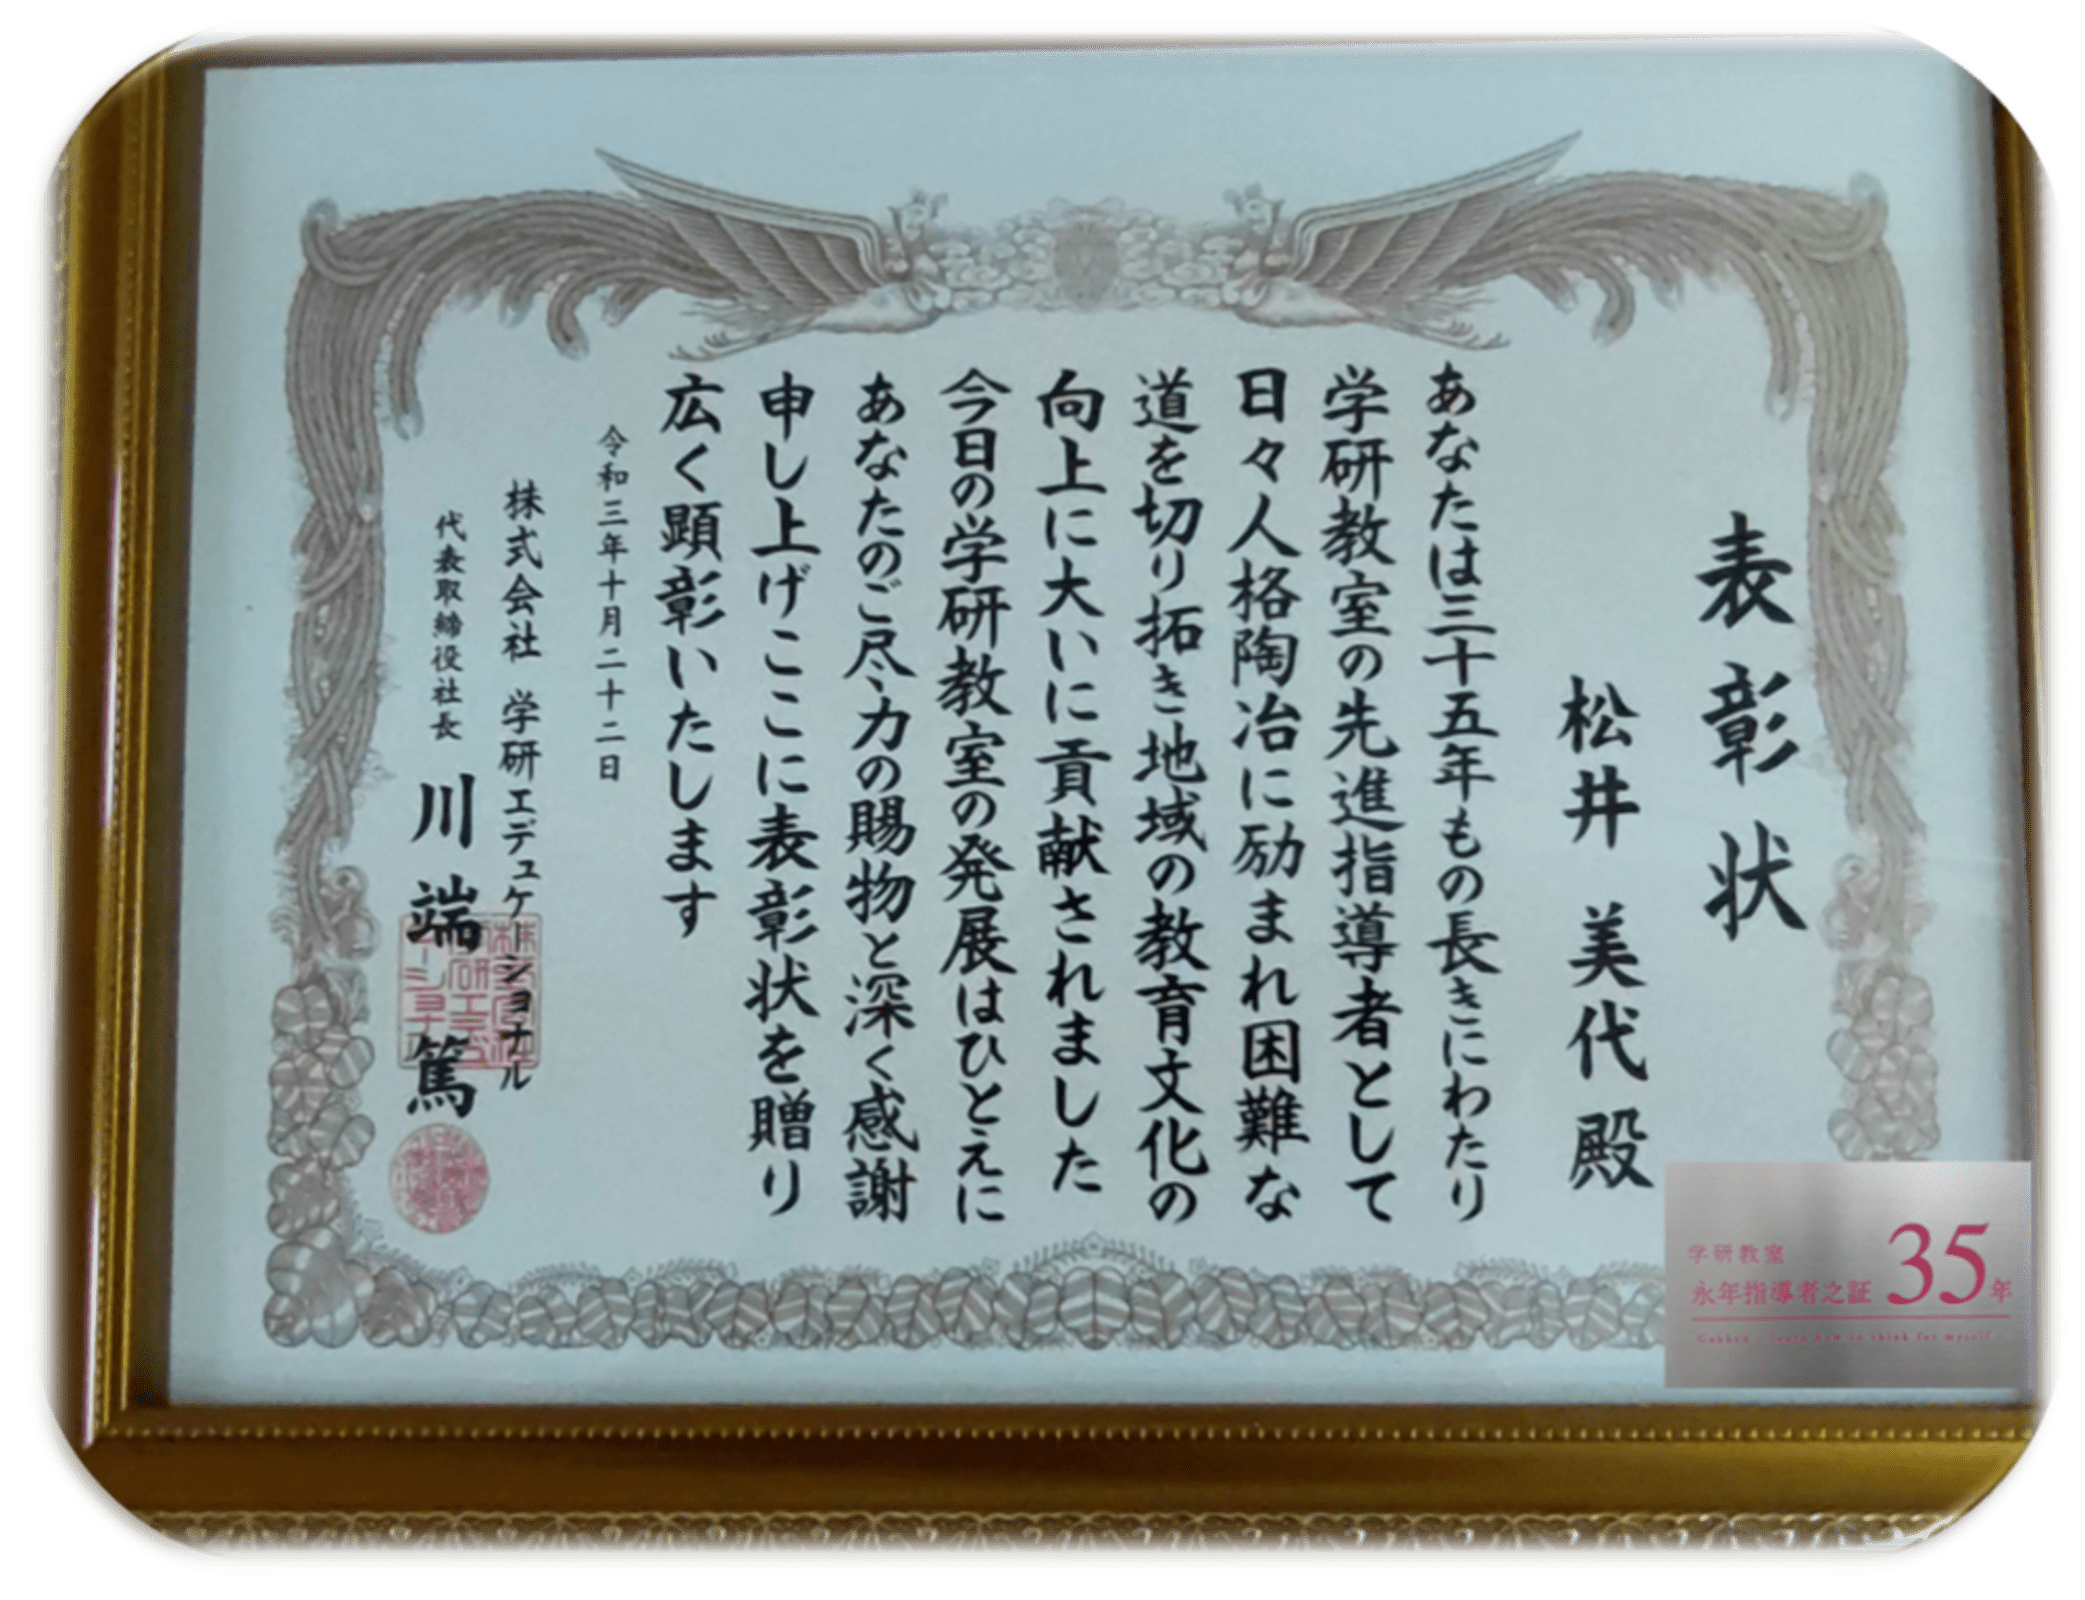 表彰状
松井 美代 殿
あなたは三十五年もの長きにわたり
学研教室の先進指導者として
日々人格陶冶に励まれ困難な
道を切り拓き地域の教育文化の
向上に大いに貢献されました
今日の学研教室の発展はひとえに
あなたのご尽力の賜物と深く感謝
申し上げここに表彰状を贈り
広く顕彰いたします
令和三年十月二十二日
株式会社 学研エデュケーショナル
代表取締役社長 川端 篤
学研教室
永年指導者之証 35年
Gakken - learn how to think for myself -